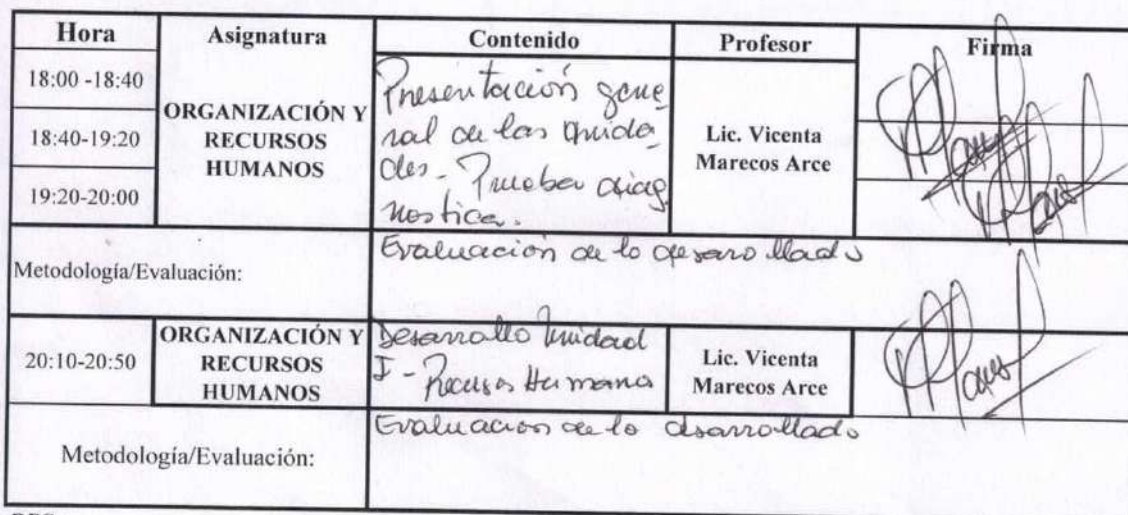 Hora Asignatura Contenido Profesor Firma
18:00 -18:40
18:40-19:20
19:20-20:00
ORGANIZACIÓN Y
RECURSOS
HUMANOS
Presentación gene
ral de las Unida
des. Prueba diag
nostica.
Lic. Vicenta
Marecos Arce
Metodología/Evaluación:
Evaluación de lo desarrollado
20:10-20:50
ORGANIZACIÓN Y
RECURSOS
HUMANOS
Desarrollo Unidad
I - Recursos Humano
Lic. Vicenta
Marecos Arce
Metodología/Evaluación:
Evaluacion de lo desarrollado